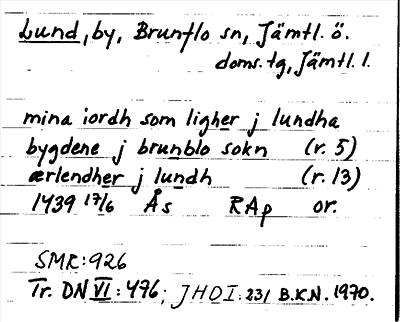 Lund, by, Brunflo sn, Jämtl. ö.
doms. tg, Jämtl. l.
mina iordh som ligher j lundha
bygdene j brunblo sokn (r. 5)
ærlendher j lundh (r. 13)
1439 17/6 Ås RAp or.
SMR: 926
Tr. DN VI: 476; JHD I: 231 B.K.N. 1970.